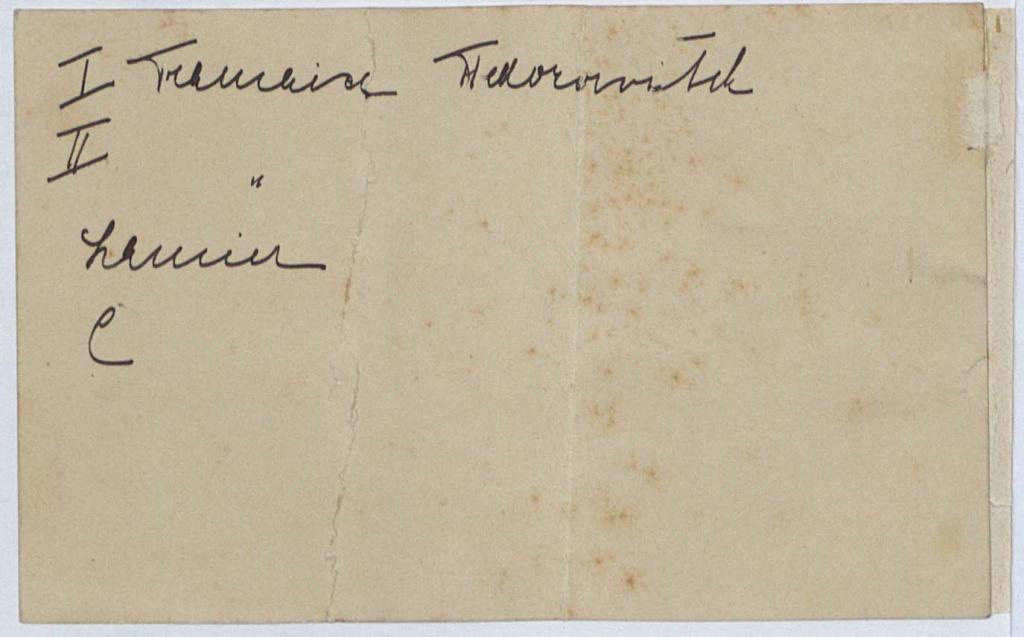 I Francoise Fedorovitch
II
"
Lannier
C